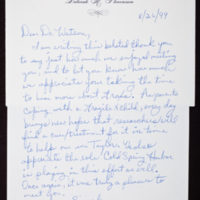 8/26/99
Dear Dr. Watson,
I am writing this belated thank you
to say just how much we enjoyed meeting
you, and to let you know how much
we appreciate your taking the time
to hear more about Fragile X. As parents
coping with a Fragile X child, every day
brings new hope that researchers will
find a cure/treatment for it in time
to help our son Taylor. We also
appreciate the role Cold Spring Harbor
is playing in this effort as well.
Once again, it was truly a pleasure to
meet you.